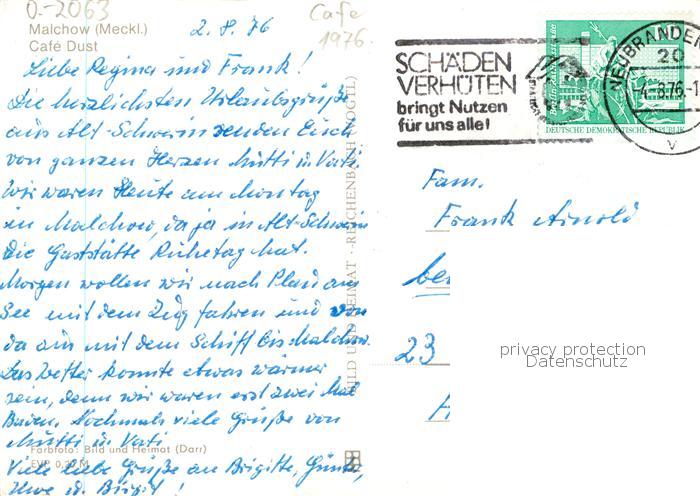 0-2063
Malchow (Meckl.)
Café Dust
2.8.76
Cafe
1976
Liebe Regina und Frank!
Die herzlichsten Urlaubsgrüße
aus Alt-Schwerin senden Euch
von ganzen Herzen Mutti u. Vati.
Wir waren Heute am Montag
in Malchow, da ja in Alt-Schwerin
die Gaststätte Ruhetag hat.
Morgen wollen wir nach Plau am
See mit dem Zug fahren und von
da aus mit dem Schiff bis Malchow.
Das Wetter könnte etwas wärmer
sein, denn wir waren erst zwei Mal
Baden. Nochmals viele Grüße von
Mutti u. Vati
Farbfoto: Bild und Heimat (Darr)
EVP 0,20 M
Viele liebe Grüße an Brigitte, Günter,
Uwe u. Birgit!
BILD UND HEIMAT · REICHENBACH (VOGTL)
SCHÄDEN
VERHÜTEN
bringt Nutzen
für uns alle!
DEUTSCHE DEMOKRATISCHE REPUBLIK
NEUBRANDEN
20
-4.-8.76-1
v
Fam.
Frank Arnold
23
privacy protection
Datenschutz